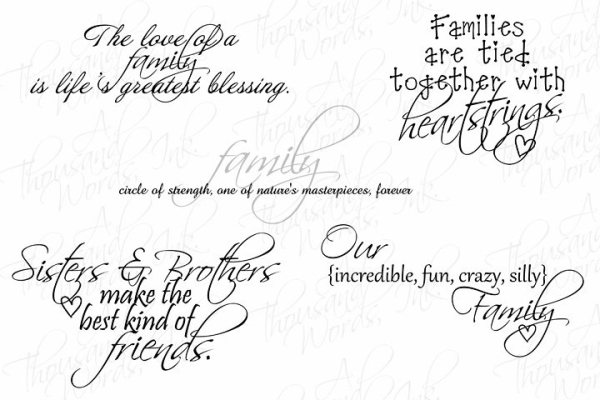 The love of a
family
is life's greatest blessing.
Families
are tied
together with
heartstrings.
family
circle of strength, one of nature's masterpieces, forever
Sisters & Brothers
make the
best kind of
friends.
Our
{incredible, fun, crazy, silly}
Family